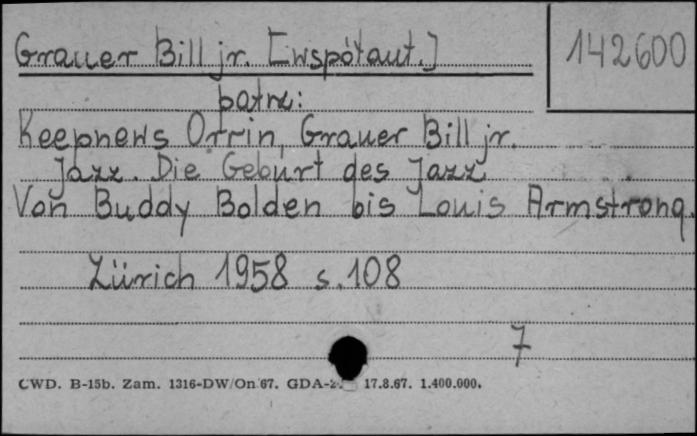 Grauer Bill jr. [wspótaut.]
142600
patrz:
Keepnews Orrin, Grauer Bill jr.
Jazz. Die Geburt des Jazz
Von Buddy Bolden bis Louis Armstrong.
Zürich 1958 s. 108
7
CWD. B-15b. Zam. 1316-DW/On 67. GDA-2 17.8.67. 1.400.000.